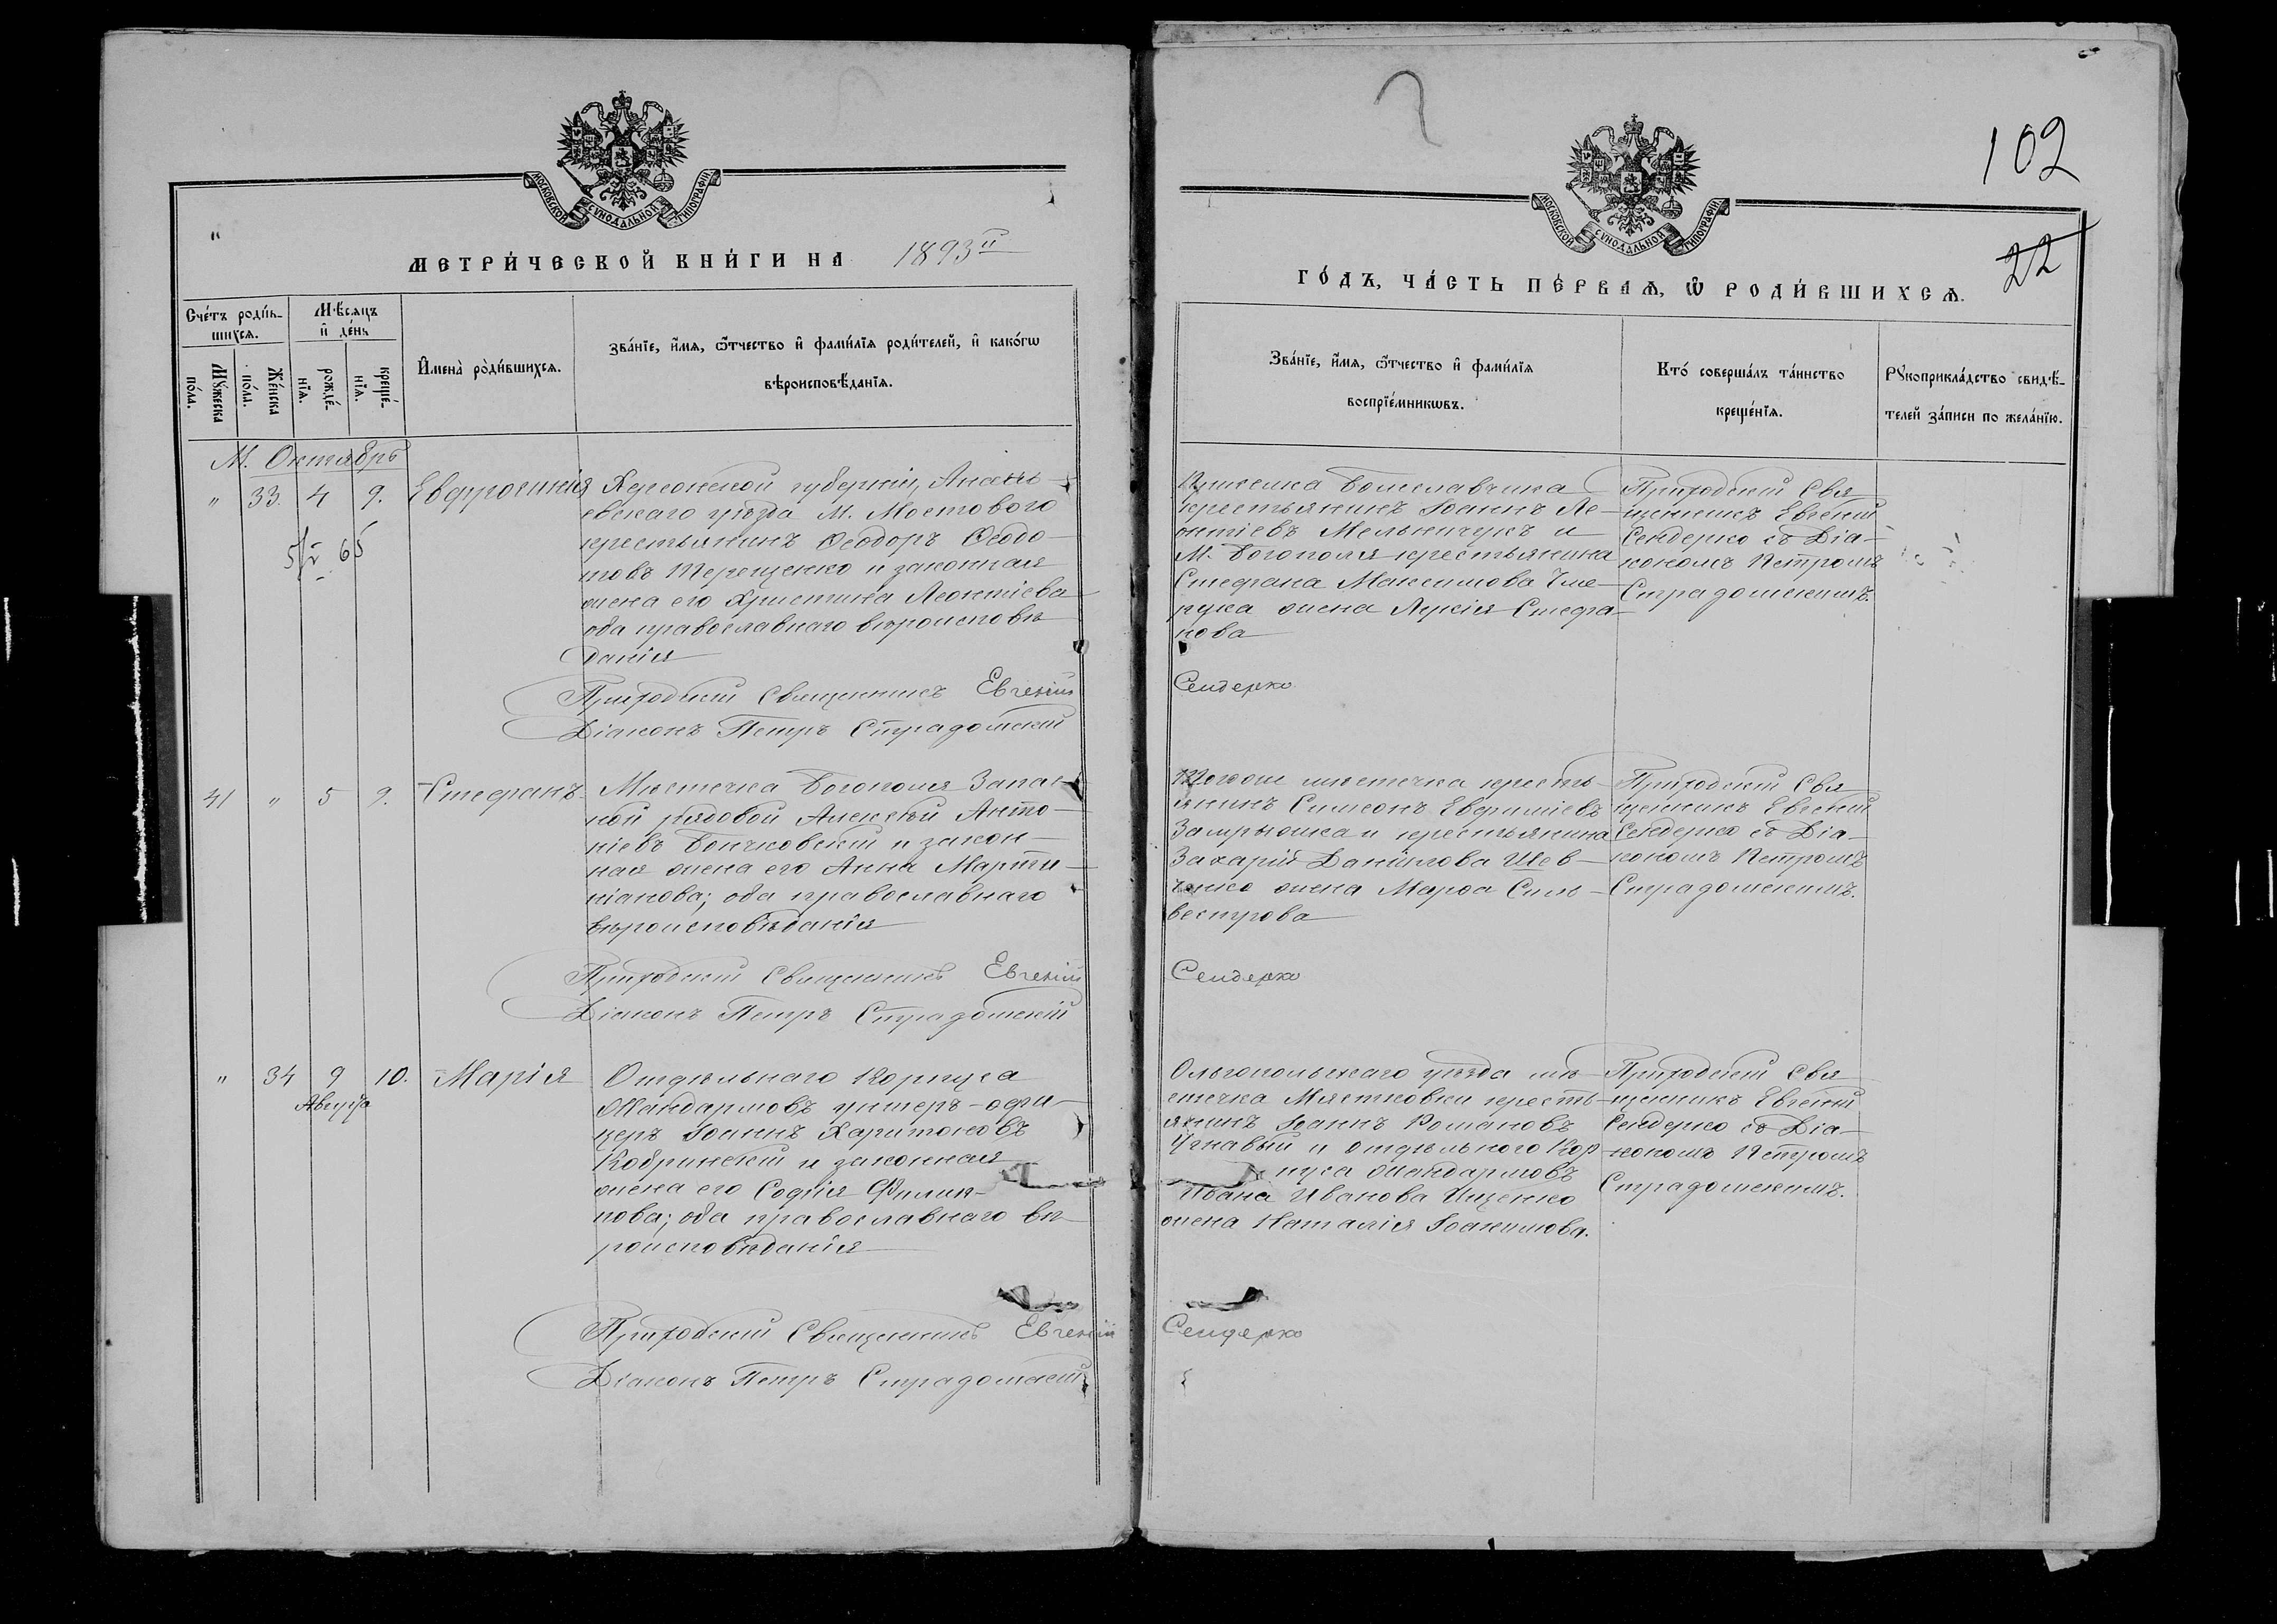 102
22
МОСКОВСКОЙ СѴНОДАЛЬНОЙ ТИПОГРАФІИ
МЕТРИ́ЧЕСКОЙ КНИ́ГИ НА 1893й
Сче́тъ роди́в-
шихся.
Мѣсяцъ
и де́нь
Мꙋ́жеска
по́ла.
Же́нска
по́ла.
рожде́-
нїя.
креще́-
нїя.
И҆мена̀ роди́вшихся.
Зва́нїе, и҆́мя, ѻ҆́тчество и҆ фами́лїя роди́телей, и҆ како́гѡ
вѣроисповѣ́данїя.
М. Октябрь
" 33. 4 9. Евфросинія
Херсонской губерніи, Анань-
евскаго уѣзда М. Мостового
крестьянинъ Ѳеодоръ Ѳеодо-
товъ Терещенко и законная
жена его Христина Леонтіева
оба православнаго вѣроисповѣ
данія
Приходскій Священникъ Евгеній
Діаконъ Петръ Страдомскій
41 " 5 9. Стефанъ.
Мѣстечка Богополя Запас-
ной рядовой Алексѣй Анто-
ніевъ Бончковскій и закон-
ная жена его Анна Марти-
ніанова; оба православнаго
вѣроисповѣданія
Приходскій Священникъ Евгеній
Діаконъ Петръ Страдомскій
" 34 9 10. Марія
Августа
Отдѣльнаго Корпуса
Жандармовъ унтеръ-офи-
церъ Іоаннъ Харитоновъ
Кобринскій и законная
жена его Софія Филип-
пова; оба православнаго вѣ
роисповѣданія
Приходскій Священникъ Евгеній
Діаконъ Петръ Страдомскій
МОСКОВСКОЙ СѴНОДАЛЬНОЙ ТИПОГРАФІИ
ГО́ДЪ, ЧА́СТЬ ПЕ́РВАЯ, Ѡ҆ РОДИ́ВШИХСЯ.
Зва́нїе, и҆́мя, ѻ҆́тчество и҆ фами́лїя
воспрїе́мникѡвъ.
Кто́ соверша́лъ та́инство
креще́нїя.
Рꙋкоприкла́дство свидѣ́-
телей за́писи по жела́нїю.
Болеславчика
крестьянинъ Іоаннъ Ле-
онтіевъ Мельничукъ и
М. Богополя крестьянина
Стефана Максимова
жена Лукія Стефа-
нова
Приходскій Свя
щенникъ Евгеній
Сендерко съ Діа-
кономъ Петромъ
Страдомскимъ.
Сендерко
Тогоже мѣстечка кресть-
янинъ Симеонъ Евфиміевъ
и крестьянина
Захарія Даніилова Шев-
ченко жена Марѳа Силь-
вестрова
Приходскій Свя
щенникъ Евгеній
Сендерко съ Діа-
кономъ Петромъ
Страдомскимъ.
Сендерко
Ольгопольскаго уѣзда мѣ-
стечка Мястковки кресть-
янинъ Іоаннъ Романовъ
и отдѣльнаго Кор
пуса жандармовъ
Ивана Иванова Ищенко
жена Наталія Іоакимова.
Приходскій Свя
щенникъ Евгеній
Сендерко съ Діа-
кономъ Петромъ
Страдомскимъ.
Сендерко